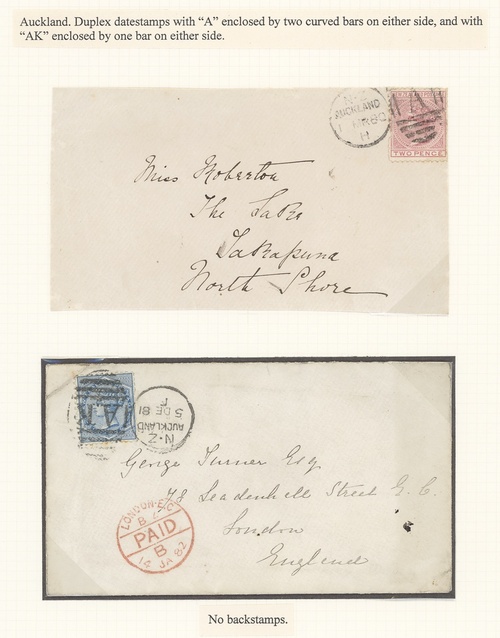 Auckland. Duplex datestamps with “A” enclosed by two curved bars on either side, and with
“AK” enclosed by one bar on either side.
N·Z
AUCKLAND
MR 80
H
TWO PENCE
Miss Roberton
The Lake
Takapuna
North Shore
N·Z
AUCKLAND
5 DE 81
George Turner Esq
78 Leadenhall Street E. C.
London
England
LONDON·E.C
PAID
B
14 JA 82
No backstamps.